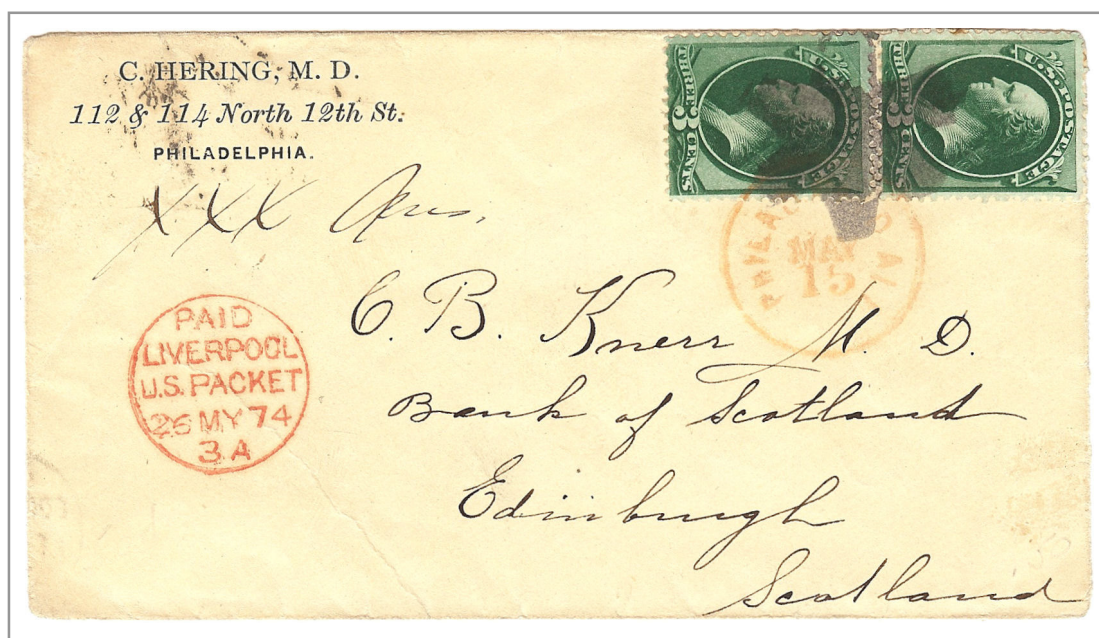 C. HERING, M. D.
112 & 114 North 12th St.
PHILADELPHIA.
U.S. POSTAGE
THREE 3 CENTS
U.S. POSTAGE
THREE 3 CENTS
XXX
PHILA
MAY
15
PAID
LIVERPOOL
U.S. PACKET
26 MY 74
3 A
C. B. Knerr M. D.
Bank of Scotland
Edinburgh
Scotland